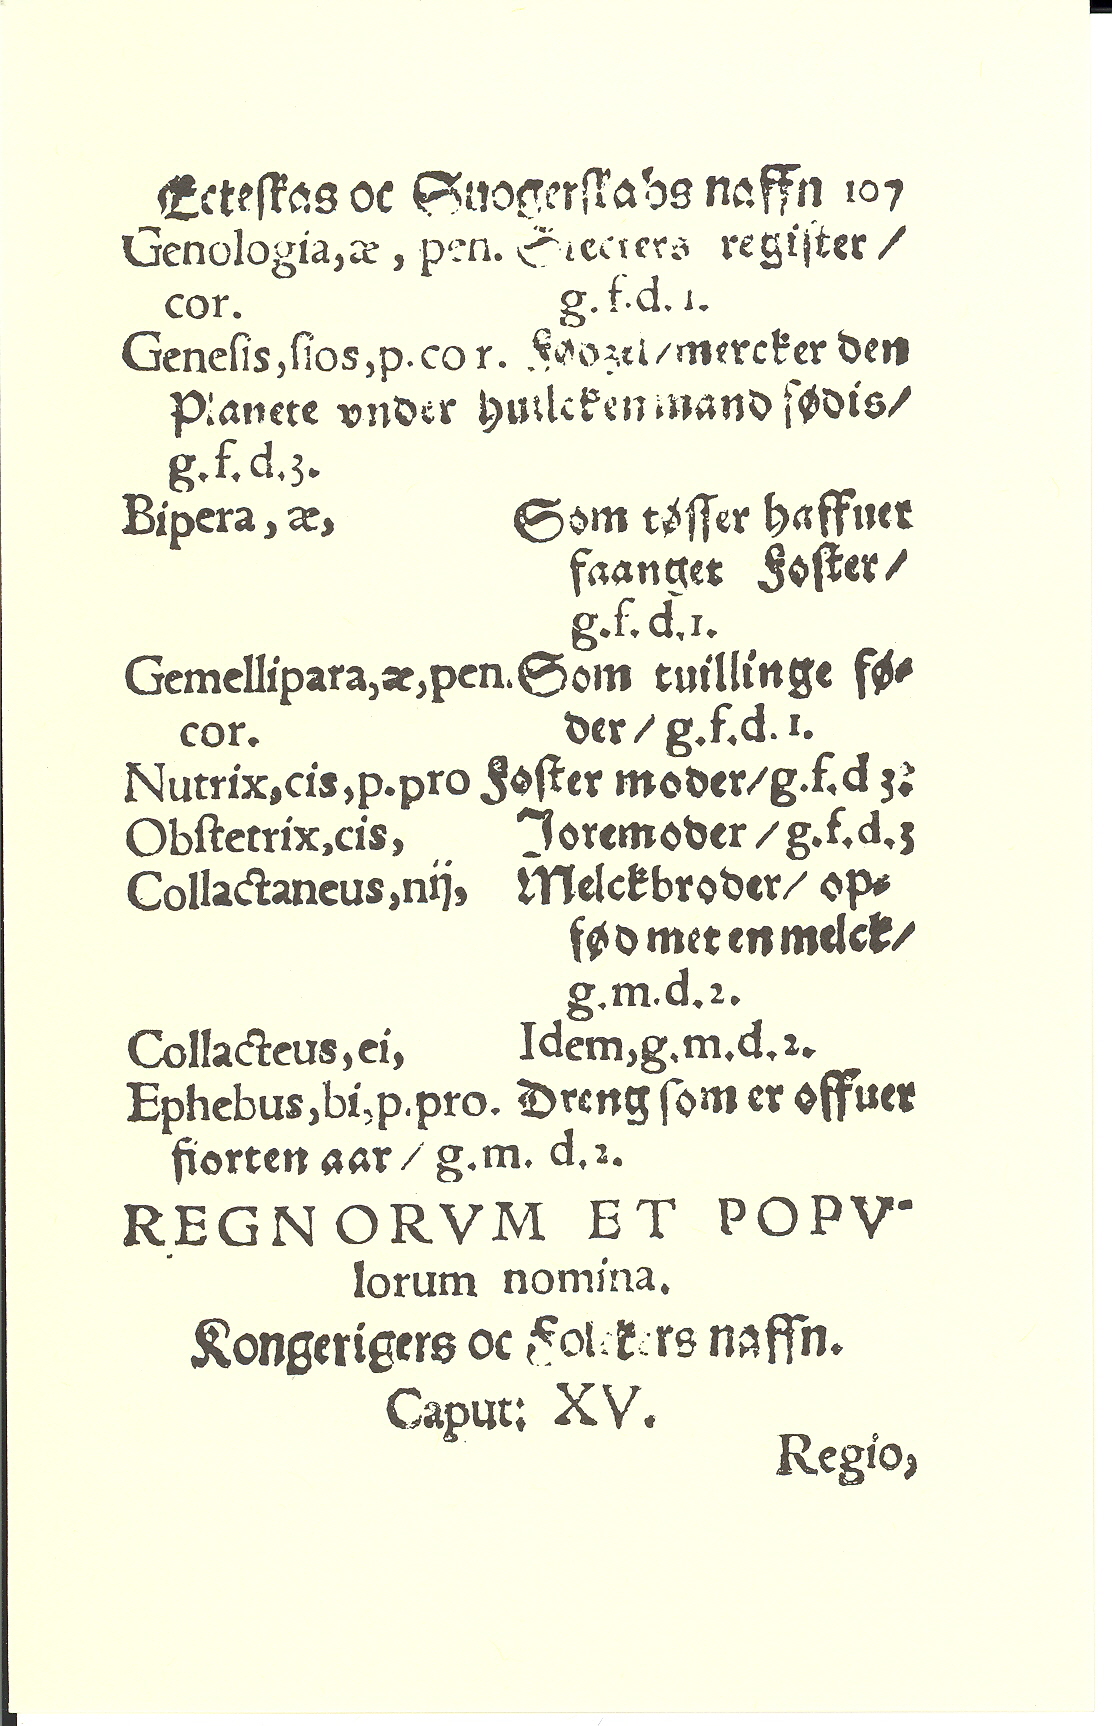 Ecteskas oc Suogerskabs naffn 107
Genologia,æ, pen. register /
cor. g.f.d.1.
Genesis,sios,p.cor. /mercker den
Planete vnder huilcken mand fødis/
g.f.d.3.
Bipera, æ, Som tøsser haffuer
faanget Foster/
g.f.d.1.
Gemellipara,æ,pen. Som tuillinge fø-
cor. der / g.f.d.1.
Nutrix,cis,p.pro Foster moder/g.f.d 3.
Obstetrix,cis, Joremoder / g.f.d.3
Collactaneus,nij, Melckbroder/ op-
fød met en melck/
g.m.d.2.
Collacteus,ei, Idem,g.m.d.2.
Ephebus,bi,p.pro. Dreng som er offuer
fiorten aar / g.m. d.2.
REGNORVM ET POPV-
lorum nomina.
Kongerigers oc Folckers naffn.
Caput: XV.
Regio,